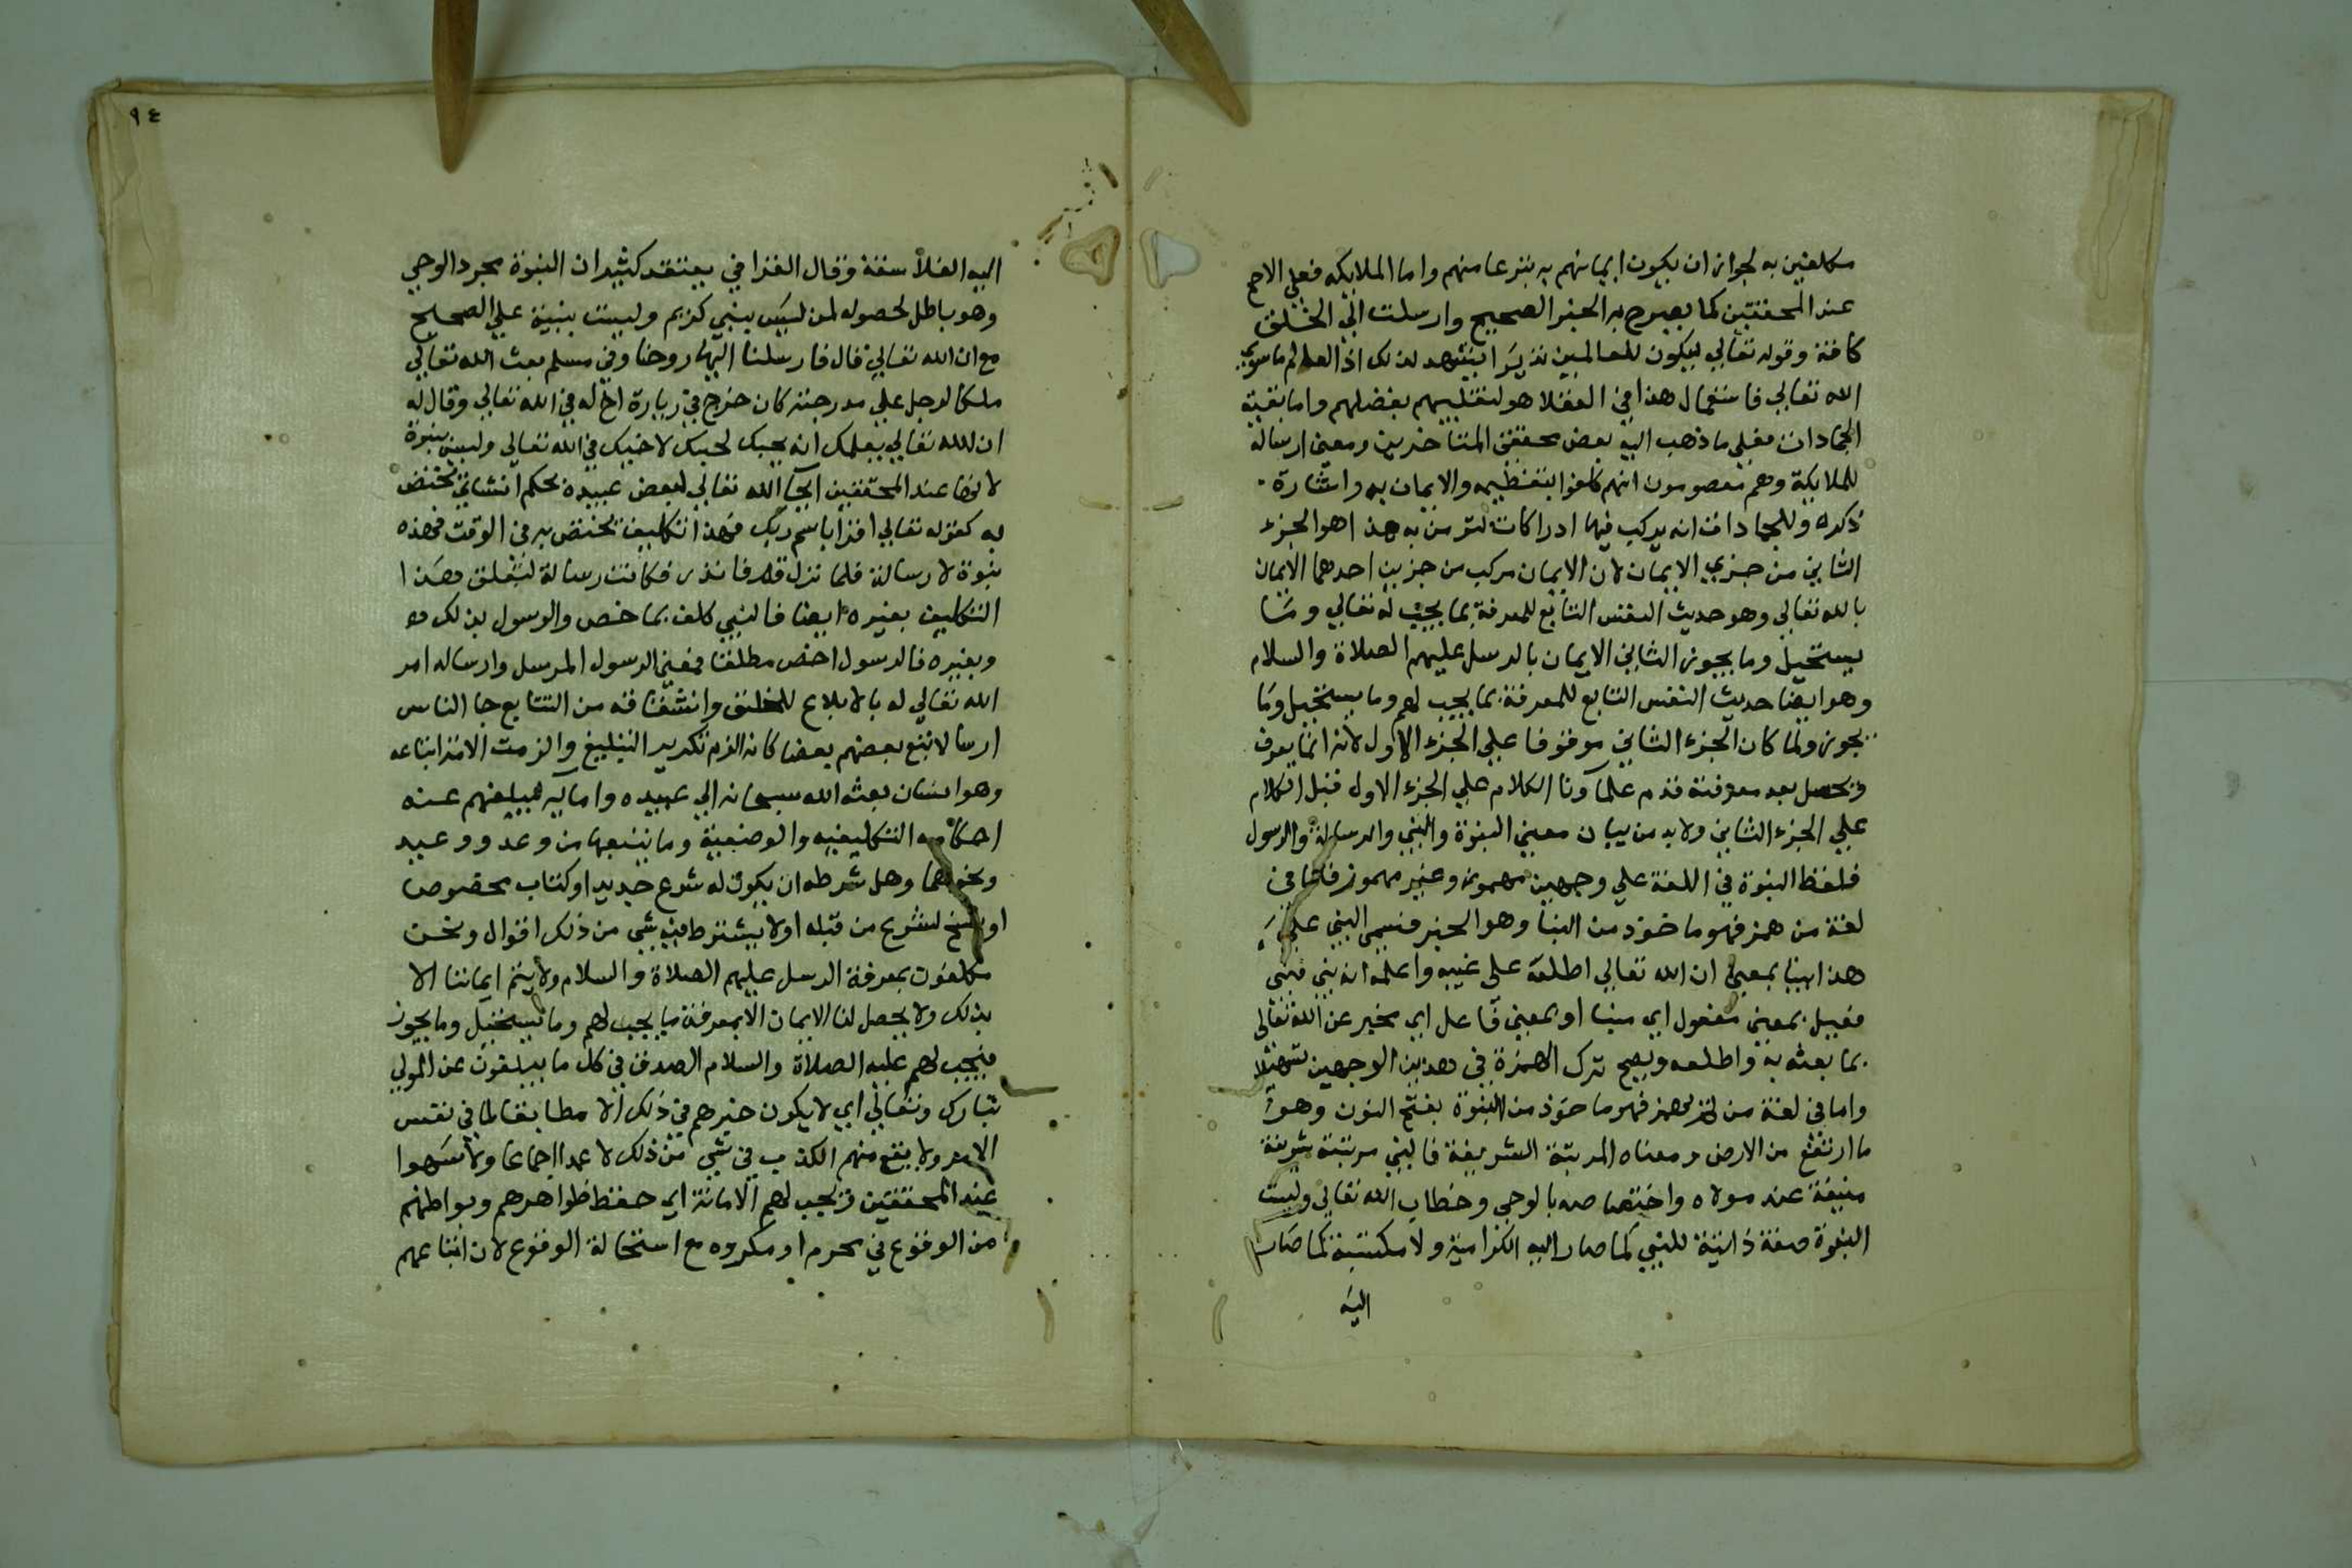 مكلفين به لجواز ان يكون ايمانهم به تبرعا منهم واما الملايكه فعلي الاصح
عند المحققين كما يصرح به الخبر الصحيح وارسلت الي الخلق
كافة وقوله تعالي ليكون للعالمين نذيرا يشهد لذلك اذ العالم ما سوي
الله تعالي فاستعمال هذا في العقلا هو لتغليبهم بفضلهم واما بقية
الجمادات فعلي ما ذهب اليه بعض محققي المتاخرين ومعني ارساله
للملايكة وهم معصومون انهم كلفوا بتعظيمه والايمان به واشارة
ذكره وللجمادات انه يركب فيها ادراكات لتومن به هذا هو الجزء
الثاني من جزي الايمان لان الايمان مركب من جزين احدهما الايمان
بالله تعالي وهو حديث النفس التابع للمعرفة بما يجب له تعالي وما
يستحيل وما يجوز الثاني الايمان بالرسل عليهم الصلاة والسلام
وهو ايضا حديث النفس التابع للمعرفة بما يجب لهم وما يستحيل وما
يجوز ولما كان الجزء الثاني موقوفا علي الجزء الاول لانه انما يعرف
ويحصل بعد معرفته قدم علماونا الكلام علي الجزء الاول قبل الكلام
علي الجزء الثاني ولابد من بيان معني النبوة والنبي والرسالة والرسول
فلفظ النبوة في اللغة علي وجهين مهموز وغير مهموز فاما في
لغة من همز فهو ماخوذ من النبا وهو الخبر فسمي النبي علي
هذا نبيا بمعني ان الله تعالي اطلعه علي غيبه واعلمه انه نبي فنبي
فعيل بمعني مفعول اي منبا او بمعني فاعل اي مخبر عن الله تعالي
بما بعثه به واطلعه ويصح ترك الهمزة في هذين الوجهين تسهيلا
واما في لغة من لم يهمز فهو ماخوذ من النبوة بفتح النون وهو
ما ارتفع من الارض ومعناه المرتبة الشريفة فالنبي مرتبته شريفة
منيفة عند مولاه واختصاصه بالوحي وخطاب الله تعالي وليست
النبوة صفة ذاتية للنبي كما صار اليه الكرامية ولا مكتسبة كما صار
اليه
٩٤
اليه الفلاسفة وقال القرافي يعتقد كثير ان النبوة مجرد الوحي
وهو باطل لحصوله لمن ليس بنبي كمريم وليست بنبية علي الصحيح
مع ان الله تعالي قال فارسلنا اليها روحنا وفي مسلم بعث الله تعالي
ملكا لرجل علي مدرجته كان خرج في زيارة اخ له في الله تعالي وقال له
ان الله تعالي يعلمك انه يحبك لحبك لاخيك في الله تعالي وليس بنبوة
لانها عند المحققين ايحا الله تعالي لبعض عبيده بحكم انشاني تختص
به كقوله تعالي اقرا باسم ربك فهذا تكليف يختص به في الوقت فهذه
نبوة لا رسالة فلما نزل قم فانذر فكانت رسالة لتعلق هذا
التكليف بغيره ايضا فالنبي كلف بما خص والرسول بذلك
وبغيره فالرسول اخص مطلقا فمعني الرسول المرسل وارساله امر
الله تعالي له بالابلاغ للخلق واشتقاقه من التتابع جا الناس
ارسالا تبع بعضهم بعضا كانه الزم تكرير التبليغ والزمت الامة اتباعه
وهو انسان بعثه الله سبحانه الي عبيده وامايه ليبلغهم عنه
احكامه التكليفيه والوضعية وما يتبعها من وعد ووعيد
ونحوهما وهل شرطه ان يكون له شرع جديد او كتاب مخصوص
او نسخ لشرع من قبله او لا يشترط فيه شي من ذلك اقوال ونحن
مكلفون بمعرفة الرسل عليهم الصلاة والسلام ولا يتم ايماننا الا
بذلك ولا يحصل لنا الايمان الا بمعرفة ما يجب لهم وما يستحيل وما يجوز
فيجب لهم عليه الصلاة والسلام الصدق في كل ما يبلغون عن المولي
تبارك وتعالي اي لا يكون خبرهم في ذلك الا مطابقا لما في نفس
الامر ولا يقع منهم الكذب في شي من ذلك لا عمدا اجماعا ولا سهوا
عند المحققين ويجب لهم الامانة اي حفظ ظواهرهم وبواطنهم
من الوقوع في محرم او مكروه مع استحالة الوقوع لان اتباعهم